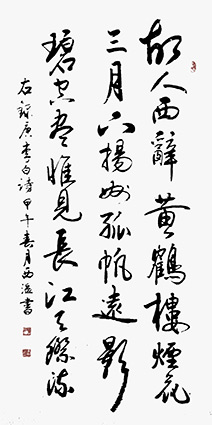 故人西辭黃鶴樓煙花
三月下揚州孤帆遠影
碧空盡惟見長江天際流
右錄唐李白詩甲午春月西書